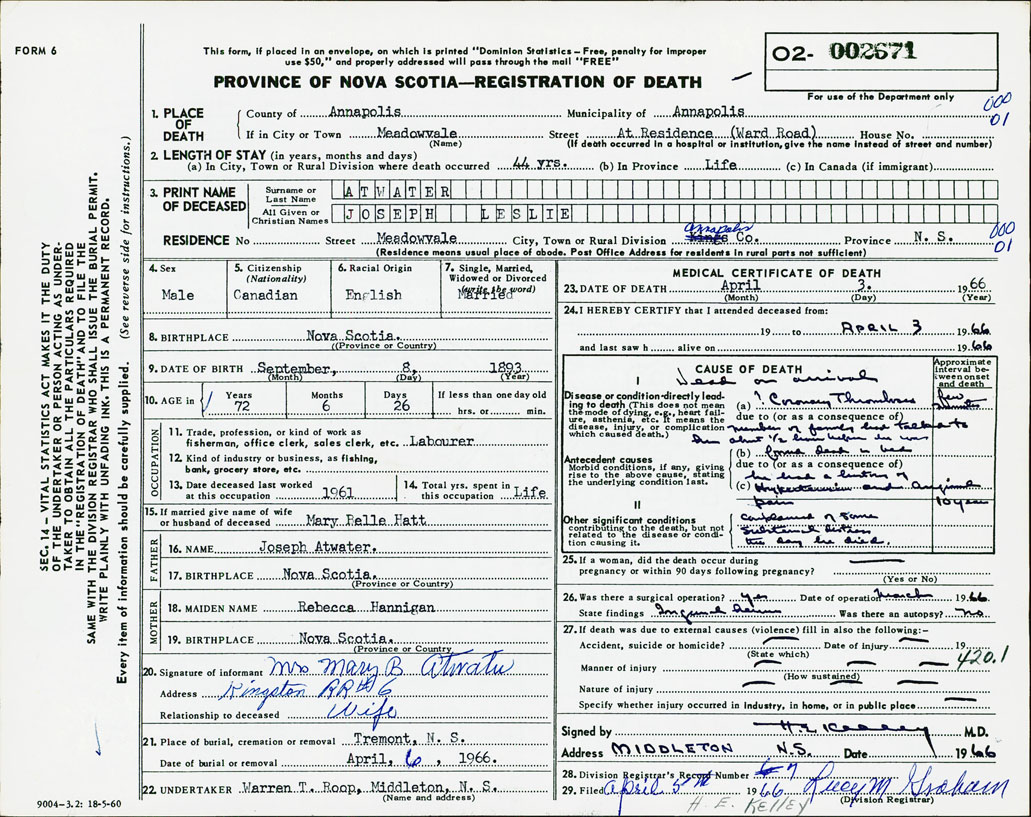 FORM 6
This form, if placed in an envelope, on which is printed "Dominion Statistics – Free, penalty for improper
use $50," and properly addressed will pass through the mail "FREE"
PROVINCE OF NOVA SCOTIA—REGISTRATION OF DEATH
02- 002671
For use of the Department only
000
01
1. PLACE OF DEATH
County of Annapolis Municipality of Annapolis
If in City or Town Meadowvale Street At Residence (Ward Road) House No.
(Name) (If death occurred in a hospital or institution, give the name instead of street and number)
2. LENGTH OF STAY (in years, months and days)
(a) In City, Town or Rural Division where death occurred 44 yrs. (b) In Province Life (c) In Canada (if immigrant)
3. PRINT NAME OF DECEASED
Surname or Last Name ATWATER
All Given or Christian Names JOSEPH LESLIE
RESIDENCE No Street Meadowvale City, Town or Rural Division Annapolis Kings Co. Province N. S.
000
01
(Residence means usual place of abode. Post Office Address for residents in rural parts not sufficient)
4. Sex Male
5. Citizenship (Nationality) Canadian
6. Racial Origin English
7. Single, Married, Widowed or Divorced (write the word) Married
8. BIRTHPLACE Nova Scotia.
(Province or Country)
9. DATE OF BIRTH September, 8, 1893
(Month) (Day) (Year)
10. AGE in Years Months Days If less than one day old
72 6 26 hrs. or min.
OCCUPATION
11. Trade, profession, or kind of work as
fisherman, office clerk, sales clerk, etc. Labourer
12. Kind of industry or business, as fishing,
bank, grocery store, etc.
13. Date deceased last worked at this occupation 1961
14. Total yrs. spent in this occupation Life
15. If married give name of wife
or husband of deceased Mary Belle Hatt
FATHER
16. NAME Joseph Atwater.
17. BIRTHPLACE Nova Scotia.
(Province or Country)
MOTHER
18. MAIDEN NAME Rebecca Hannigan
19. BIRTHPLACE Nova Scotia.
(Province or Country)
20. Signature of informant Mrs Mary B Atwater
Address Kingston RR# 6
Relationship to deceased Wife
21. Place of burial, cremation or removal Tremont, N. S.
Date of burial or removal April, 6, 1966.
22. UNDERTAKER Warren T. Roop, Middleton, N. S.
(Name and address)
MEDICAL CERTIFICATE OF DEATH
23. DATE OF DEATH April 3. 1966
(Month) (Day) (Year)
24. I HEREBY CERTIFY that I attended deceased from:
19 to APRIL 3 1966
and last saw h alive on 1966
CAUSE OF DEATH
Approximate interval between onset and death
I Dead on arrival
Disease or condition directly leading to death (This does not mean the mode of dying, e.g., heart failure, asthenia, etc. It means the disease, injury, or complication which caused death.)
(a) ? Coronary Thrombosis few minutes
due to (or as a consequence of)
member of family had talked to
him about 1/2 hour before he was
(b) found dead in bed
Antecedent causes
Morbid conditions, if any, giving rise to the above cause, stating the underlying condition last.
due to (or as a consequence of)
he had a history of
(c) Hypertension and Anginal
pain 10 years
II
Other significant conditions
contributing to the death, but not related to the disease or condition causing it.
complained of some
substernal distress
the day he died.
25. If a woman, did the death occur during
pregnancy or within 90 days following pregnancy?
(Yes or No)
26. Was there a surgical operation? yes Date of operation March 1966
State findings Inguinal hernia Was there an autopsy? no
27. If death was due to external causes (violence) fill in also the following:–
Accident, suicide or homicide? Date of injury 19
(State which)
420.1
Manner of injury
(How sustained)
Nature of injury
Specify whether injury occurred in industry, in home, or in public place
Signed by H.E. Kelley M.D.
Address MIDDLETON N.S. Date 1966
28. Division Registrar's Record Number 7
29. Filed April 5th 1966 Lucy M Graham
(Division Registrar)
H. E. KELLEY
9004-3.2: 18-5-60
SEC. 14 – VITAL STATISTICS ACT MAKES IT THE DUTY
OF THE UNDERTAKER OR PERSON ACTING AS UNDER-
TAKER TO OBTAIN ALL THE PARTICULARS REQUIRED
IN THE "REGISTRATION OF DEATH" AND TO FILE THE
SAME WITH THE DIVISION REGISTRAR WHO SHALL ISSUE THE BURIAL PERMIT.
WRITE PLAINLY WITH UNFADING INK. THIS IS A PERMANENT RECORD.
Every item of information should be carefully supplied. (See reverse side for instructions.)